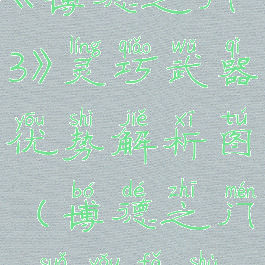 《博德之门
3》灵巧武器
líng qiǎo wǔ qì
优势解析图
yōu shì jiě xī tú
（博德之门
bó dé zhī mén
suǒ yǒu